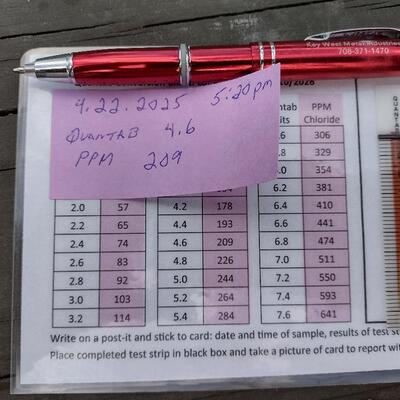 Key West Metal Industries
708-371-1470
10/2026
4.22.2025 5:20pm
QUANTAB 4.6
PPM 209
ntab PPM
its Chloride
.6 306
.8 329
.0 354
6.2 381
2.0 57 4.2 178 6.4 410
2.2 65 4.4 193 6.6 441
2.4 74 4.6 209 6.8 474
2.6 83 4.8 226 7.0 511
2.8 92 5.0 244 7.2 550
3.0 103 5.2 264 7.4 593
3.2 114 5.4 284 7.6 641
QUANTA
Write on a post-it and stick to card: date and time of sample, results of test s
Place completed test strip in black box and take a picture of card to report wit